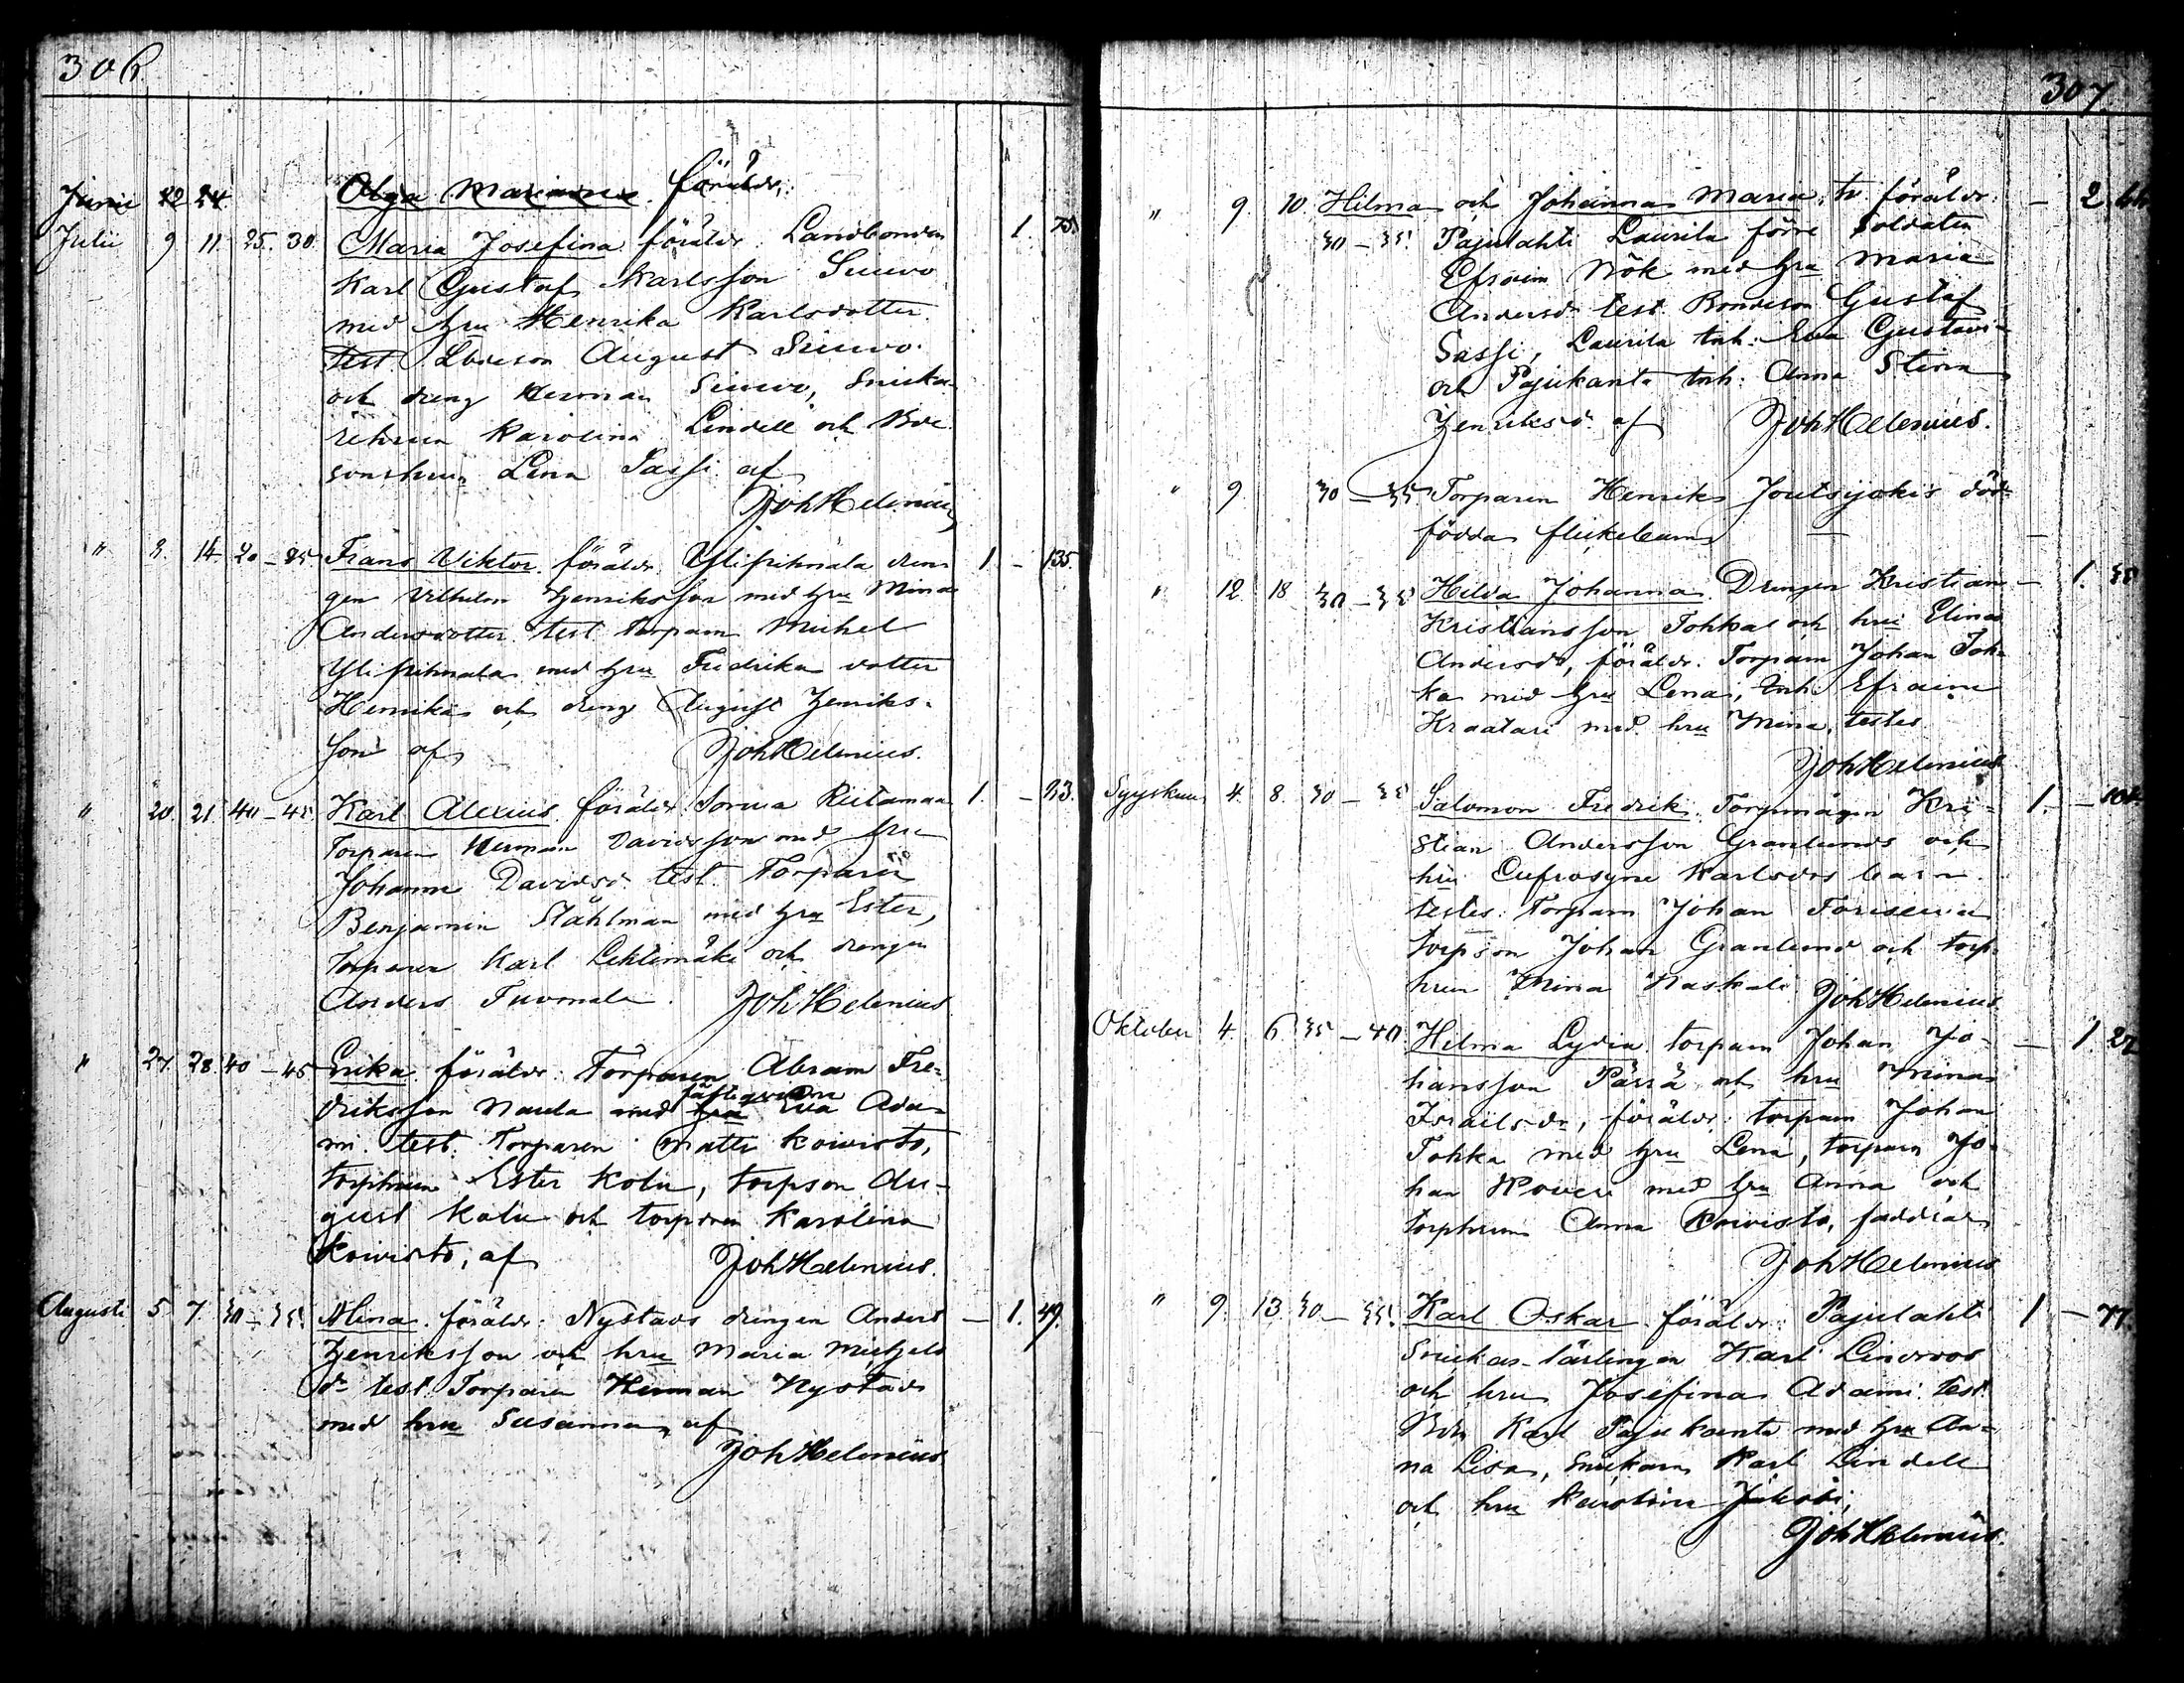 306.
Junii 22 24. Olga Maria föräldr.
Julii 9 11. 25. 30. Maria Josefina föräldr. Landbonden 1. 75.
Karl Gustaf Karlsson Siuvo
med hru Henrika Karlsdotter.
test. August Siuvo.
och dreng Herman Siuvo, Snicka-
rehrun Karolina Lindell och Bde
sonshun Lena Sassi af
Joh Helenius
" 3. 14. 20–25. Frans Viktor. föräldr. Ylipihnala dren- 1 – 135.
gen Vilhelm Henriksson med hru Mina
Andersdotter. test. torparn Mickel
Ylipihnala med hru Fredrika dotter
Henrika och dreng August Henriks-
son af Joh Helenius.
" 20. 21. 40–45. Karl Alexius. föräldr. Sorma Riitamaa 1. – 23.
Torparen Herman Davidsson med hru
Johanna Davidsd. test. Torparn
Benjamin Ståhlman med hru Ester,
Torparen Karl Lehtimäki och drengen
Anders Tuomala. Joh Helenius
" 27. 28. 40–45 Erika. föräldr. Torparen Abram Fre-
driksson Naula med hru fästeqvinn Eva Ada-
mi. test. Torparen Matts Koivisto,
torphrun Ester Kolu, torpson Au-
gust Kolu och torpdren Karolina
Koivisto, af Joh Helenius.
Augusti 5. 7. 30–35. Alina. föräldr. Nystads drengen Anders – 1. 49.
Henriksson och hru Maria Michjels
dr test. Torparen Herman Nystads
med hru Susanna, af
Joh Helenius
307
" 9. 10. Hilma och Johanna Maria, tv. föräldr. – 2. 66
30–35. Pajulahti Laurila förre Soldaten
Efraim Nök med hru Maria
Andersdr test. Bondeson Gustaf
Sassi, Laurila inh. Eva Gustavi-
och Pajukanta inh. Anna Stina
Henriksd. af Joh Helenius.
" 9. 30–35. Torparen Henriks Joutsijokis död-
födda flickebarn –
" 12. 18. 30–35 Hilda Johanna. Drengen Kristian – 1. 35
Kristiansson Tohka och hru Elina
Andersdr, föräldr. Torparn Johan Toh-
ka med hru Lena, Inh. Efraim
Kraatari med hru Mina, testes
Joh Helenius
Syyskuu 4. 8. 30–35 Salomon Fredrik. Torpmågen Kri- 1. – 104.
stian Andersson Granlunds och
hru Eufrosyne Karlsdrs barn.
testes. Torparn Johan
torpson Johan Granlund och torp-
hrun Mina Naskali. Joh Helenius
Oktober 4. 6. 35–40. Hilma Lydia. torparn Johan Jo- – 1. 22
hansson Pärrä och hru Mina
Israelsdr, föräldr. torparn Johan
Tohka med hru Lena, torparn Jo-
han med hru Anna och
torphrun Anna Koivisto, faddrar
Joh Helenius
" 9. 13. 30–35. Karl Oskar. föräldr. Pajulahti 1 – 77.
Snickar-lärlingen Karl Lindroos
och hru Josefina Adami. test.
Bdn Karl Pajukanta med hru An-
na Lisa, Snickarn Karl Lindell
och hru Karolina Jakobi,
Joh Helenius.